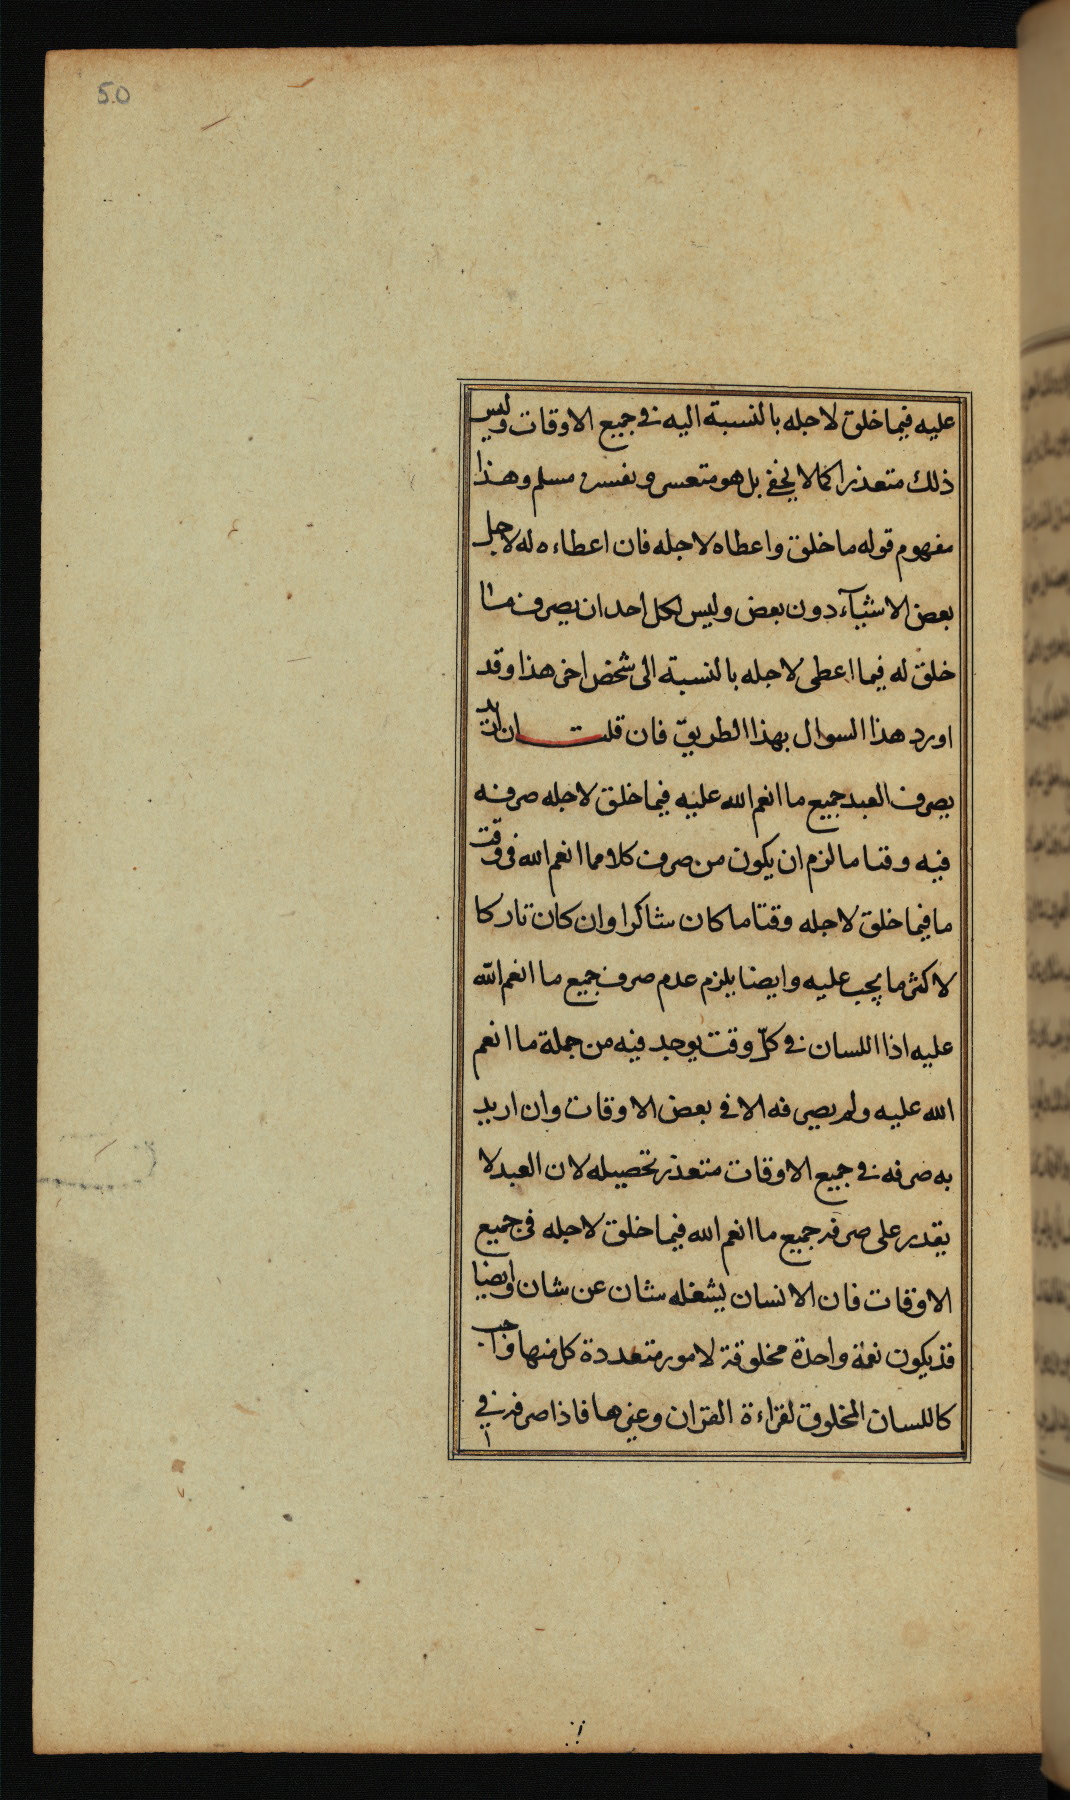 50
عليه فيما خلق لاجله بالنسبة اليه في جميع الاوقات وليس
ذلك متعذرا كما لا يخفى بل هو متعسر وتفسر مسلم وهذا
مفهوم قوله ما خلق واعطاه لاجله فان اعطاءه له لاجل
بعض الاشياء دون بعض وليس لكل احد ان يصرف ما
خلق له فيما اعطى لاجله بالنسبة الى شخص اخر هذا وقد
اورد هذا السوال بهذا الطريق فان قلت ان اريد
يصرف العبد جميع ما انعم الله عليه فيما خلق لاجله صرفه
فيه وقتا ما لزم ان يكون من صرف كلا مما انعم الله في وقت
ما فيما خلق لاجله وقتا ما كان شاكرا وان كان تاركا
لاكثر ما يجب عليه وايضا يلزم عدم صرف جميع ما انعم الله
عليه اذا اللسان في كلّ وقت يوجد فيه من جملة ما انعم
الله عليه ولم يصرفه الا في بعض الاوقات وان اريد
به صرفه في جميع الاوقات متعذر تحصيله لان العبد لا
يقدر على صرف جميع ما انعم الله فيما خلق لاجله في جميع
الاوقات فان الانسان يشغله شان عن شان وايضا
قد يكون نعمة واحدة مخلوقة لامور متعددة كل منها واجب
كاللسان المخلوق لقراءة القران وغيرها فاذا صرف في